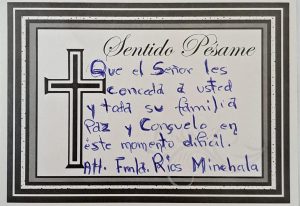 Sentido Pésame
Que el Señor les
conceda a usted
y toda su familia
Paz y Consuelo en
este momento difícil.
Att. Fmla. Rios Minchala